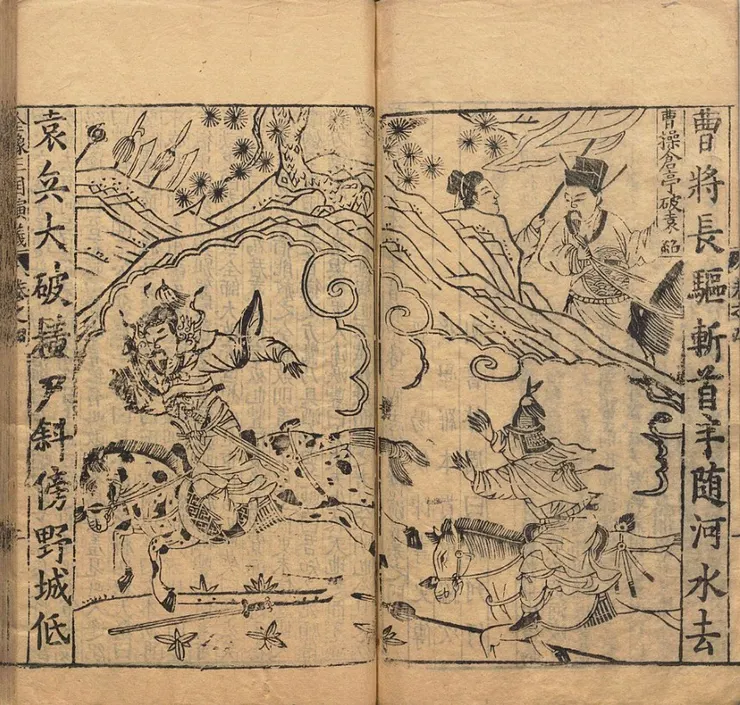 曹將長驅斬首半随河水去
曹操倉亭破袁紹
袁兵大破橫尸斜傍野城低
全像三國演義
卷之四